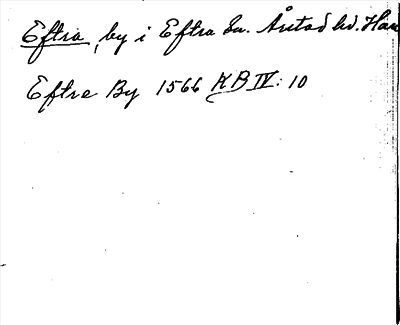 Eftra, by i Eftra sn. Årstad hd. Hall
Eftre By 1566 KB IV: 10